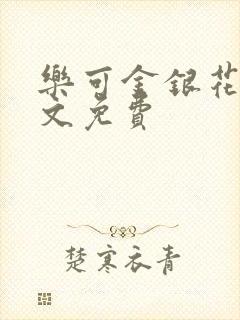 樂可金銀花
文免費
楚寒衣青